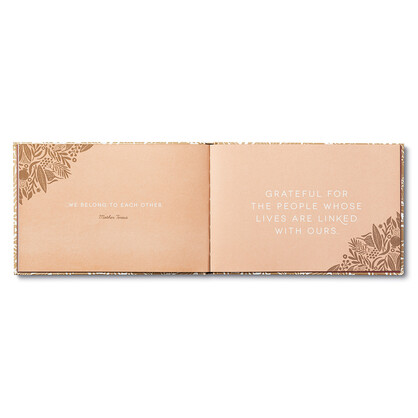 WE BELONG TO EACH OTHER.
Mother Teresa
GRATEFUL FOR
THE PEOPLE WHOSE
LIVES ARE LINKED
WITH OURS.